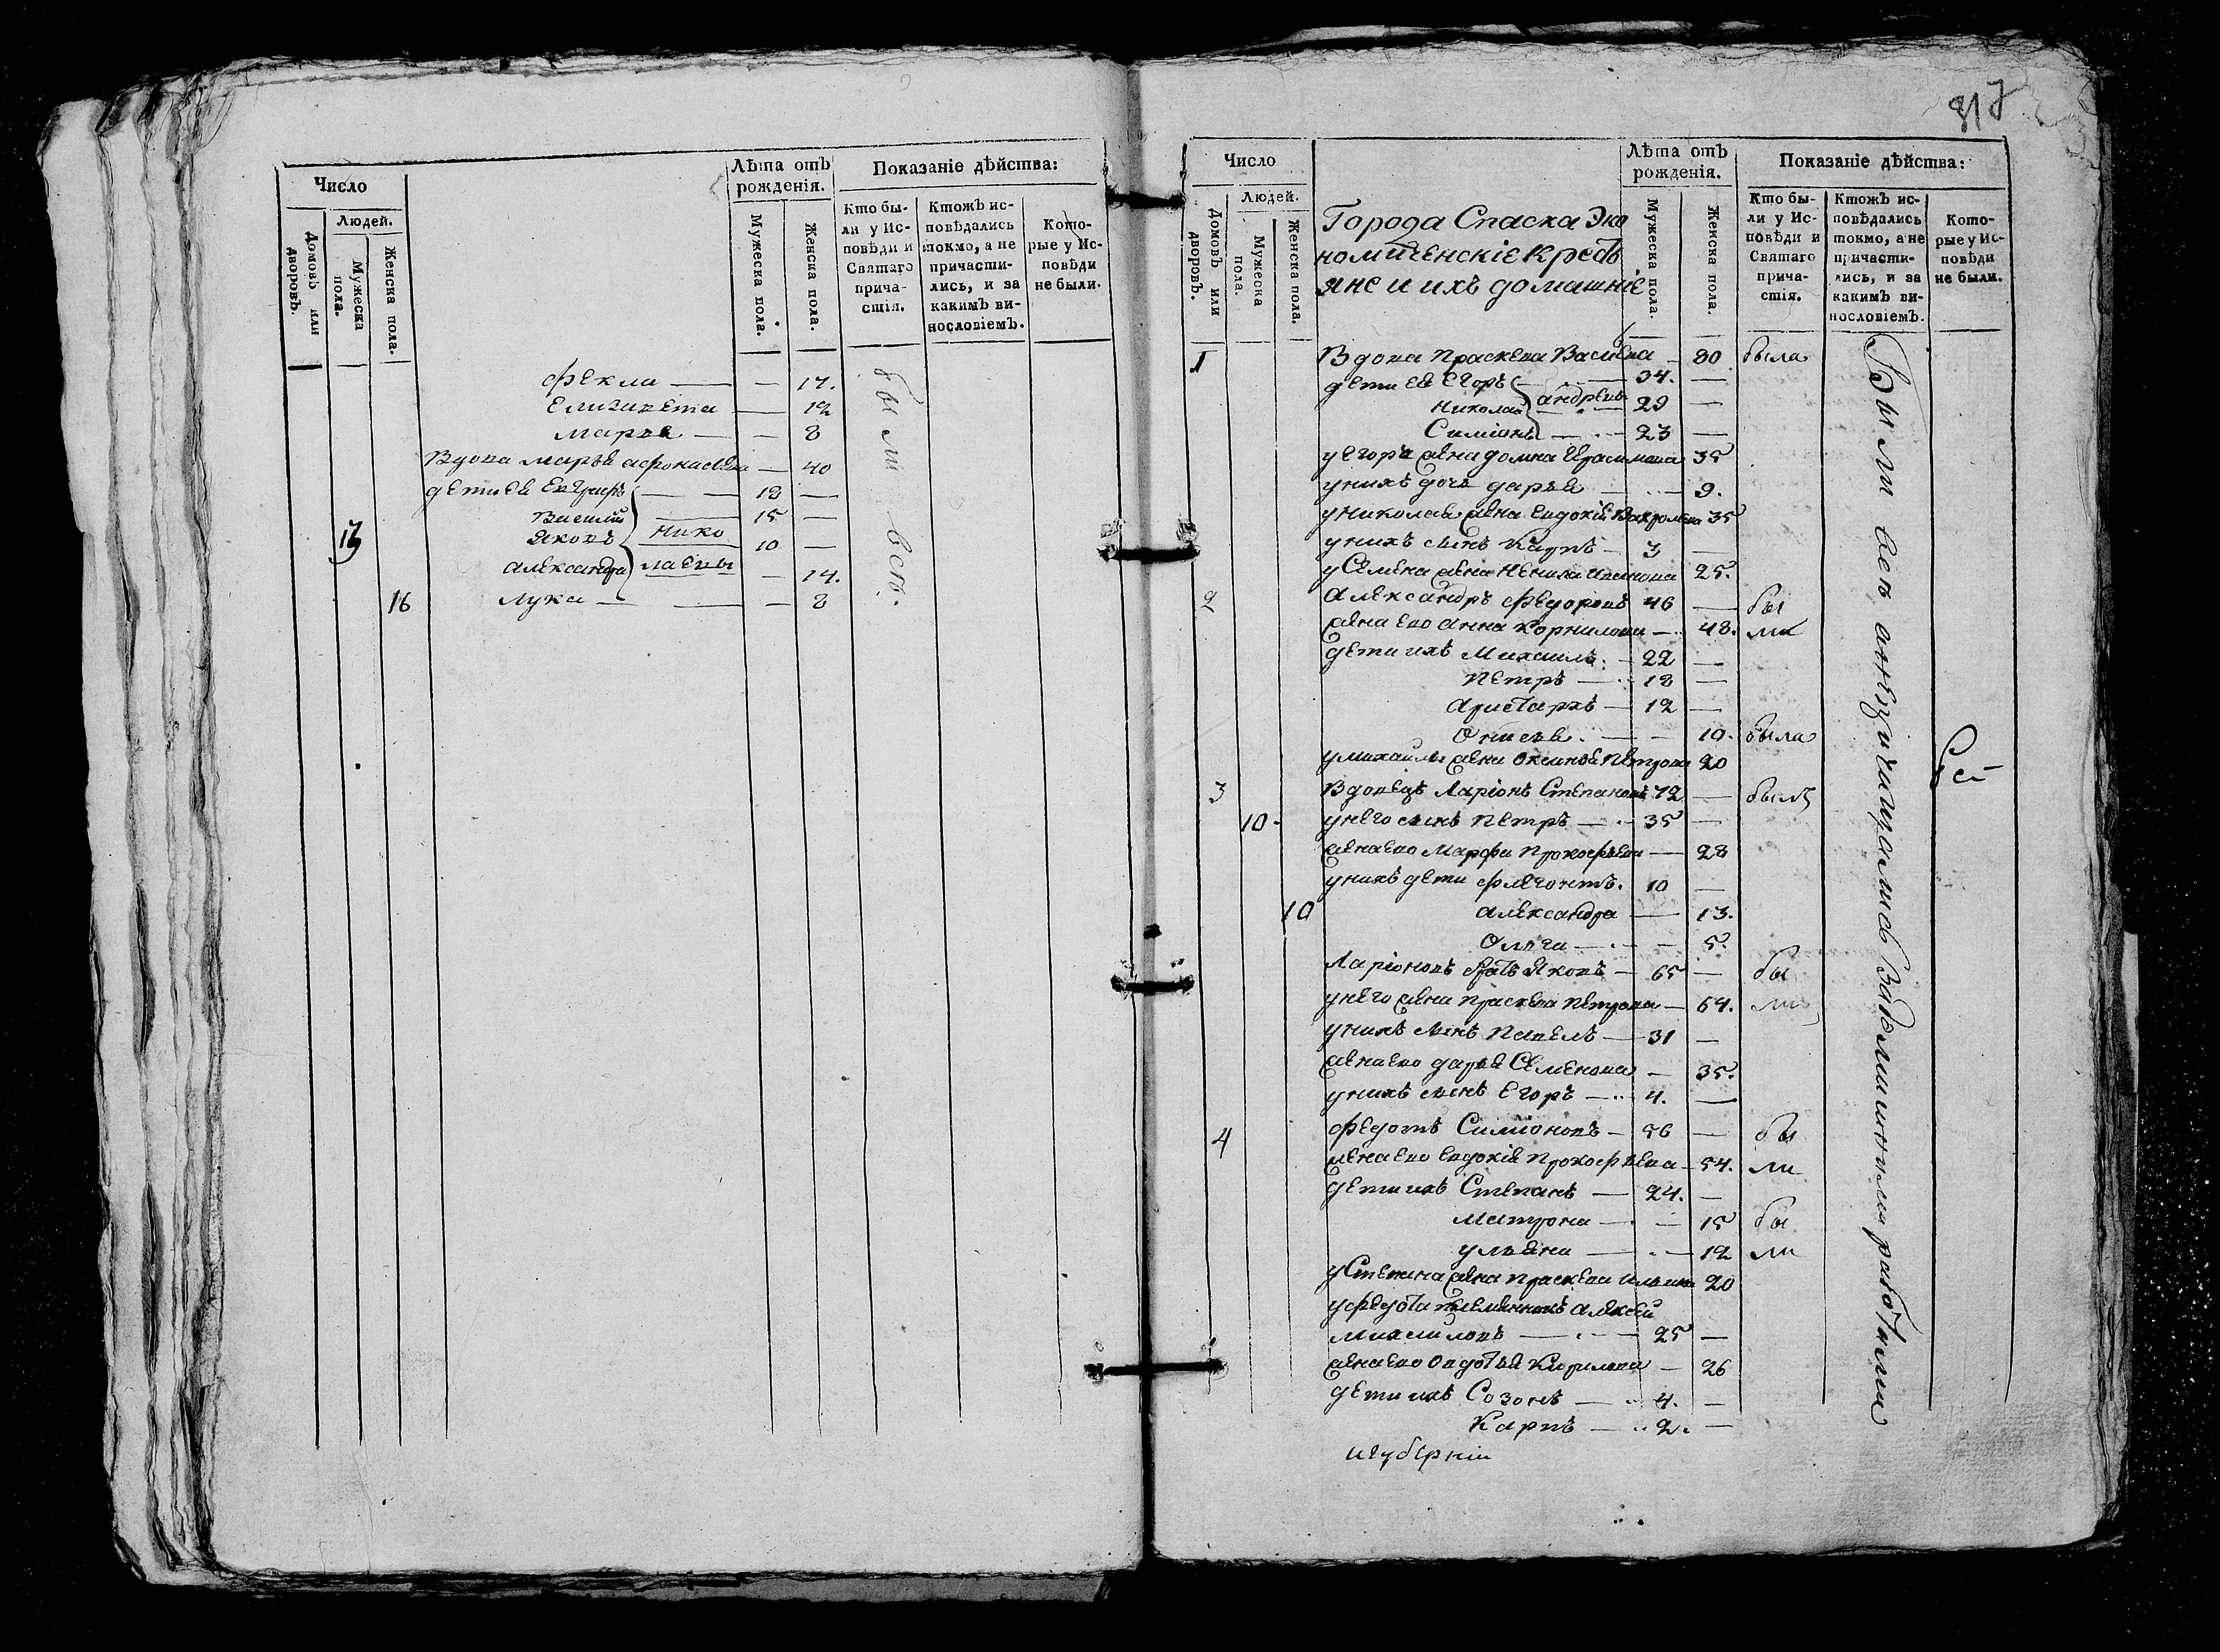 Число
Людей.
Домовъ или дворовъ.
Мужеска пола.
Женска пола.
Лѣта отъ рожденія.
Мужеска пола.
Женска пола.
Показаніе дѣйства:
Кто бы-
ли у Ис-
повѣди и
Святаго
прича-
стія.
Ктожъ ис-
повѣдались
токмо, а не
причасти-
лись, и за
какимъ ви-
нословіемъ.
Кото-
рые у Ис-
повѣди
не были.
Фекла — — 17.
Елизавета — 12
Марья — — 8
Вдова Марья Афонасьева — 40
дети ея Евграфъ — — 18 —
Василий — 15 —
Яковъ Нико 10 —
Александра лаевы — 14.
Лука — — — 8
13
16
были всѣ.
817
Число
Людей.
Домовъ или дворовъ.
Мужеска пола.
Женска пола.
Города Спаска Эко
номическіе крестъ
яне и ихъ домашніе
Лѣта отъ
рожденія.
Мужеска пола.
Женска пола.
Показаніе дѣйства:
Кто бы-
ли у Ис-
повѣди и
Святаго
прича-
стія.
Ктожъ ис-
повѣдались
токмо, а не
причасти-
лись, и за
какимъ ви-
нословіемъ.
Кото-
рые у Ис-
повѣди
не были.
1 Вдова Праскева Васильева — 80 была
дети ея Егоръ — 34. —
Николай андреевы 29 —
Симіонъ — 23 —
у Егора жена домна 35
у нихъ дочь дарья — 9.
у Николая жена Евдокія 35
у нихъ сынъ Карпъ — 3 —
у Семена жена Ненила Иванова 25.
2 Александръ Федоровъ 46 — бы
жена ево Анна Корнилова — 48. ли
дети ихъ Михаилъ. — 22 —
Петръ — 18 —
Аристархъ — 12 —
Онисья. — — 10. была
у михаилы жена Оксинья Петрова 20
3 Вдовецъ Ларіонъ Степановъ 72 — былъ
10. у него сынъ Петръ — 35 —
жена ево Марфа Прокофьева — 28
у нихъ дети Флегонтъ. 10 —
10 Александра — 13.
Ольга — — 5.
Ларіоновъ братъ Яковъ — 65 — бы
у него жена Праскева Петрова — 64. ли
у нихъ сынъ Павелъ — 31 —
жена ево дарья Семенова — 35.
у нихъ сынъ Егоръ — 4. —
4 Федотъ Симіоновъ — 56 — бы
жена ево Евдокія Прокофьева — 54. ли
дети ихъ Степанъ — 24. —
Матрона — — 15 бы
Ульяна — — 12 ли
у Степана жена Праскева Ильина 20
у Федота племянникъ Алексей
Михаиловъ — — 25 —
жена ево Овдотья Кирилова — 26
дети ихъ Созонъ — 4. —
Карпъ — 2. —
Были всѣ а неъ причащались за домашними работами
всѣ